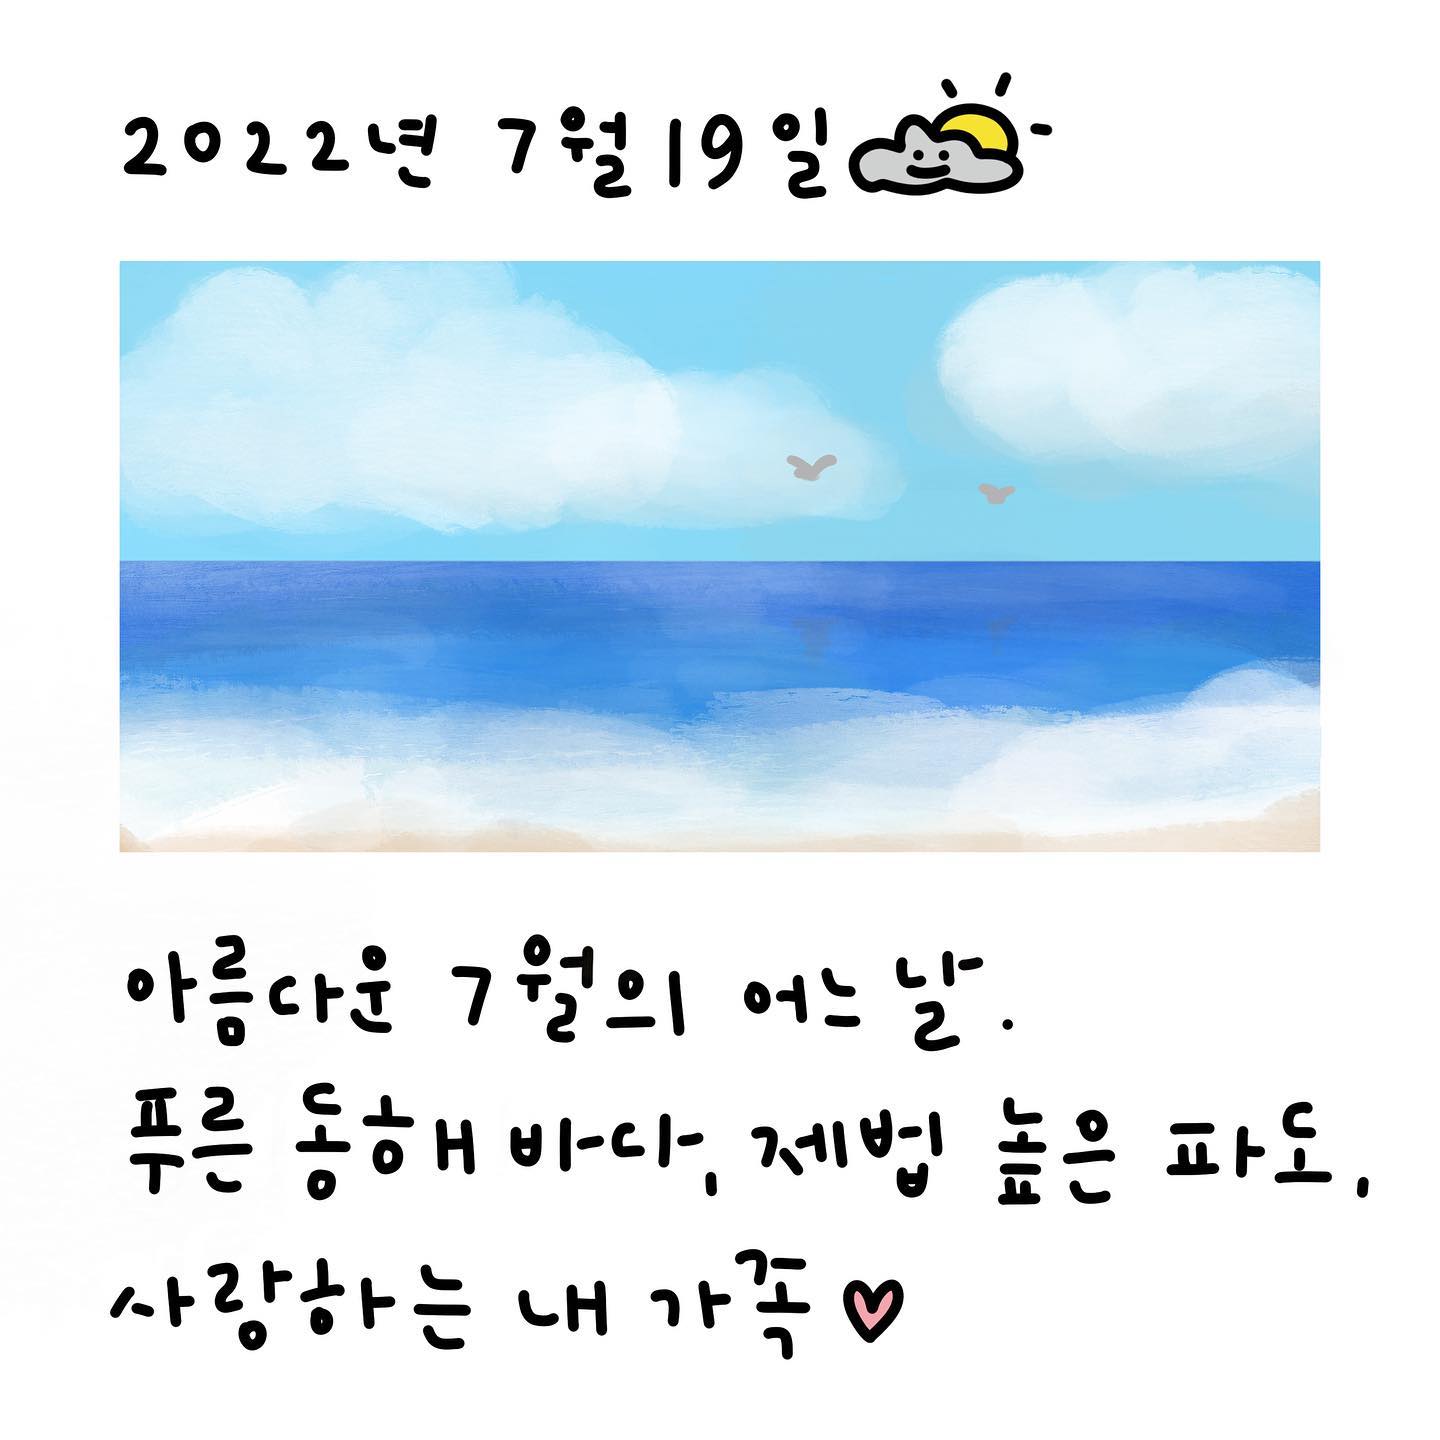 2022년 7월 19일
아름다운 7월의 어느 날.
푸른 동해 바다, 제법 높은 파도,
사랑하는 내 가족